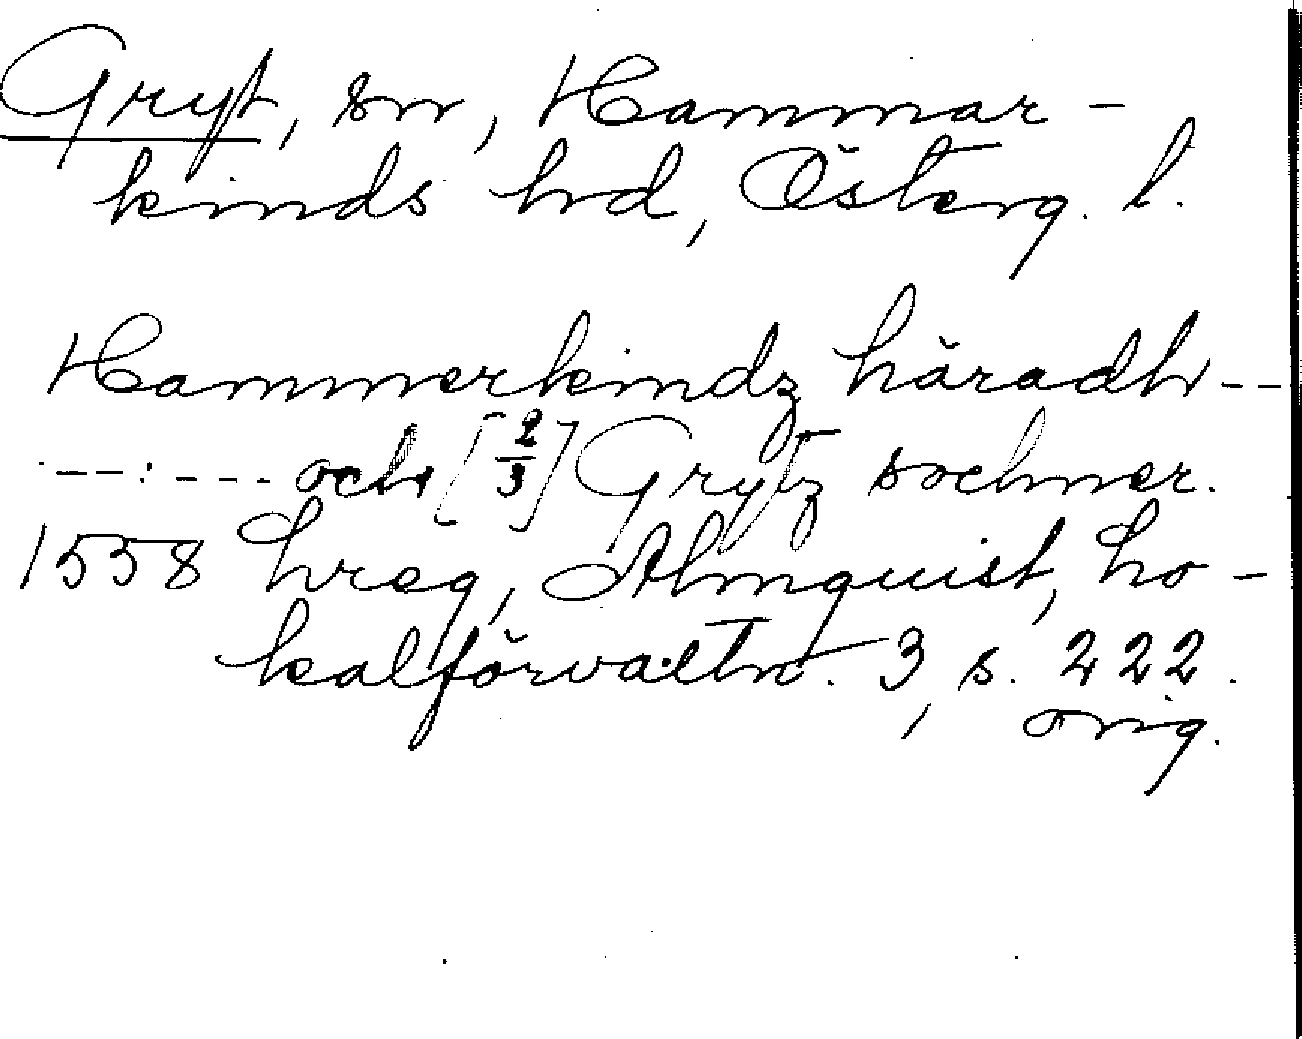 Gryt, sn, Hammar-
kinds hd, Österg. l.
Hammerkindz häradh---
--:---- och [2/3] Grytz sochner.
1558 hreg, Almquist, Lo-
kalförvaltn. 3, s. 222.
orig.